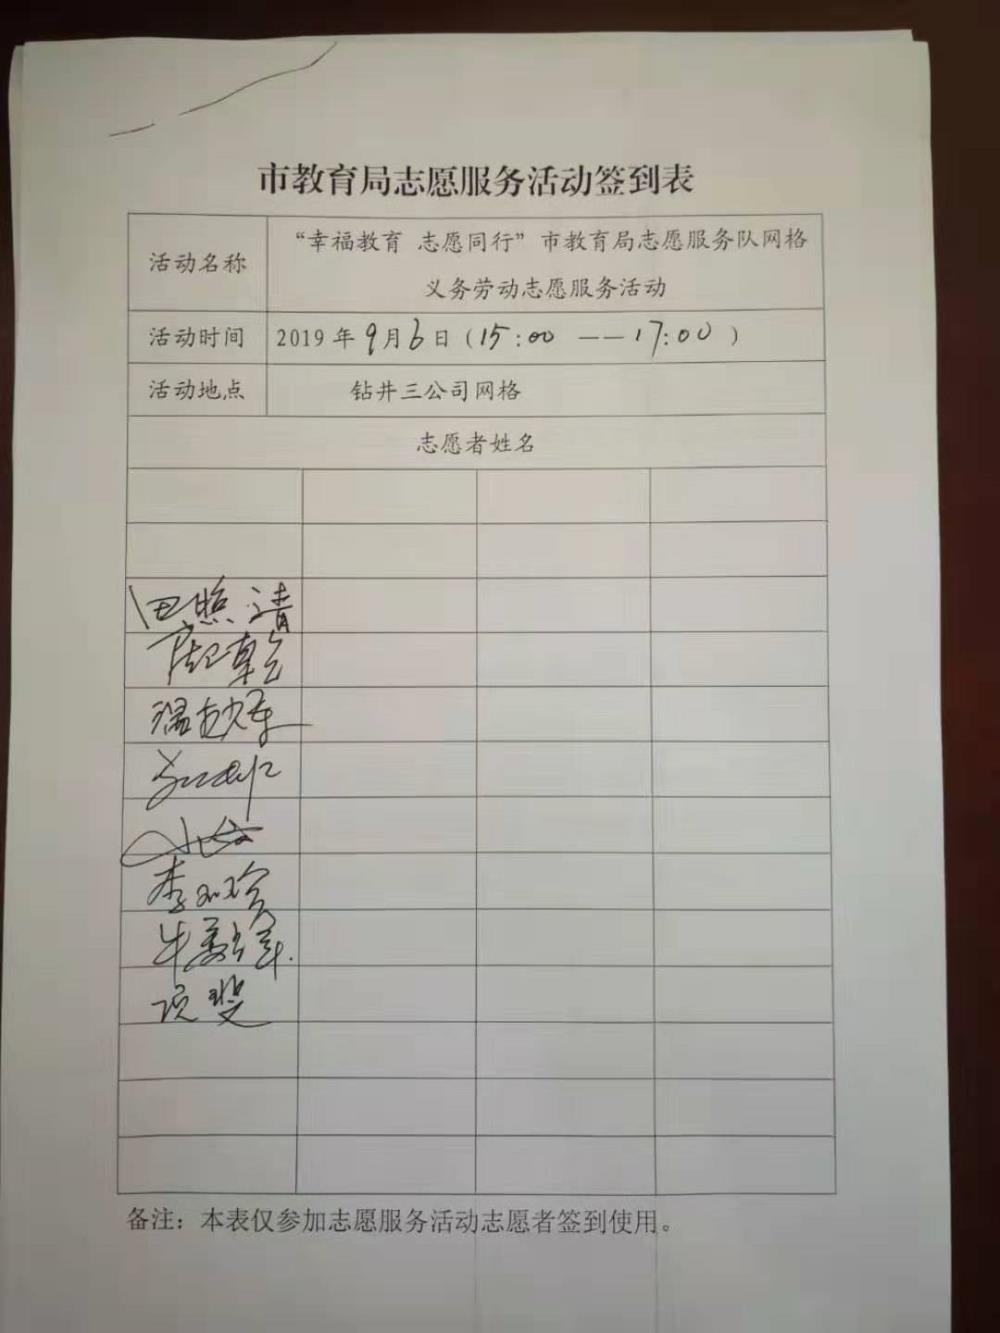 市教育局志愿服务活动签到表
活动名称
“幸福教育 志愿同行”市教育局志愿服务队网格
义务劳动志愿服务活动
活动时间
2019年9月6日(15:00 ——17:00)
活动地点
钻井三公司网格
志愿者姓名
田照清
备注：本表仅参加志愿服务活动志愿者签到使用。